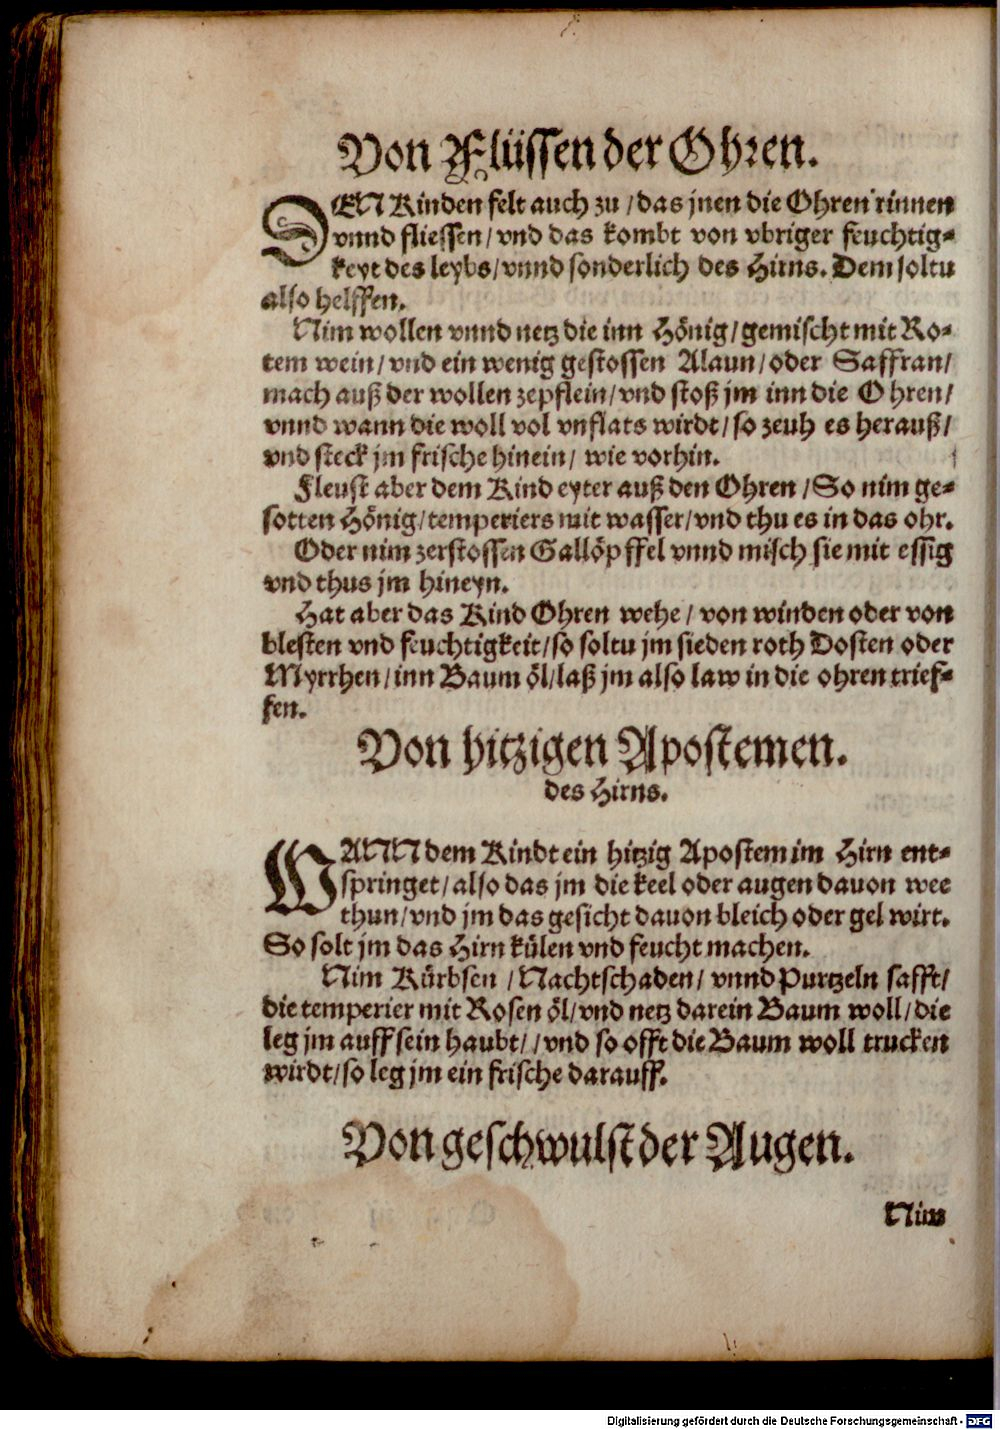 Von Flüssen der Ohren.
DEN Kinden felt auch zu / das jnen die Ohren rinnen
vnnd fliessen / vnd das kombt von vbriger feuchtig-
keyt des leybs / vnnd sonderlich des Hirns. Dem soltu
also helffen.
Nim wollen vnnd netz die inn Hönig / gemischt mit Ro-
tem wein / vnd ein wenig gestossen Alaun / oder Saffran /
mach auß der wollen zepflein / vnd stoß jm inn die Ohren /
vnnd wann die woll vol vnflats wirdt / so zeuh es herauß /
vnd steck jm frische hinein / wie vorhin.
Fleust aber dem Kind eyter auß den Ohren / So nim ge-
sotten Hönig / temperiers mit wasser / vnd thu es in das ohr.
Oder nim zerstossen Gallöpffel vnnd misch sie mit essig
vnd thus jm hineyn.
Hat aber das Kind Ohren wehe / von winden oder von
blesten vnd feuchtigkeit / so soltu jm sieden roth Dosten oder
Myrrhen / inn Baum öl / laß jm also law in die ohren trief-
fen.
Von hitzigen Apostemen.
des Hirns.
WANN dem Kindt ein hitzig Apostem im Hirn ent-
springet / also das jm die keel oder augen dauon wee
thun / vnd jm das gesicht dauon bleich oder gel wirt.
So solt jm das Hirn külen vnd feucht machen.
Nim Kürbsen / Nachtschaden / vnnd Purtzeln safft /
die temperier mit Rosen öl / vnd netz darein Baum woll / die
leg jm auff sein haubt / / vnd so offt die Baum woll trucken
wirdt / so leg jm ein frische darauff.
Von geschwulst der Augen.
Nim
Digitalisierung gefördert durch die Deutsche Forschungsgemeinschaft - DFG